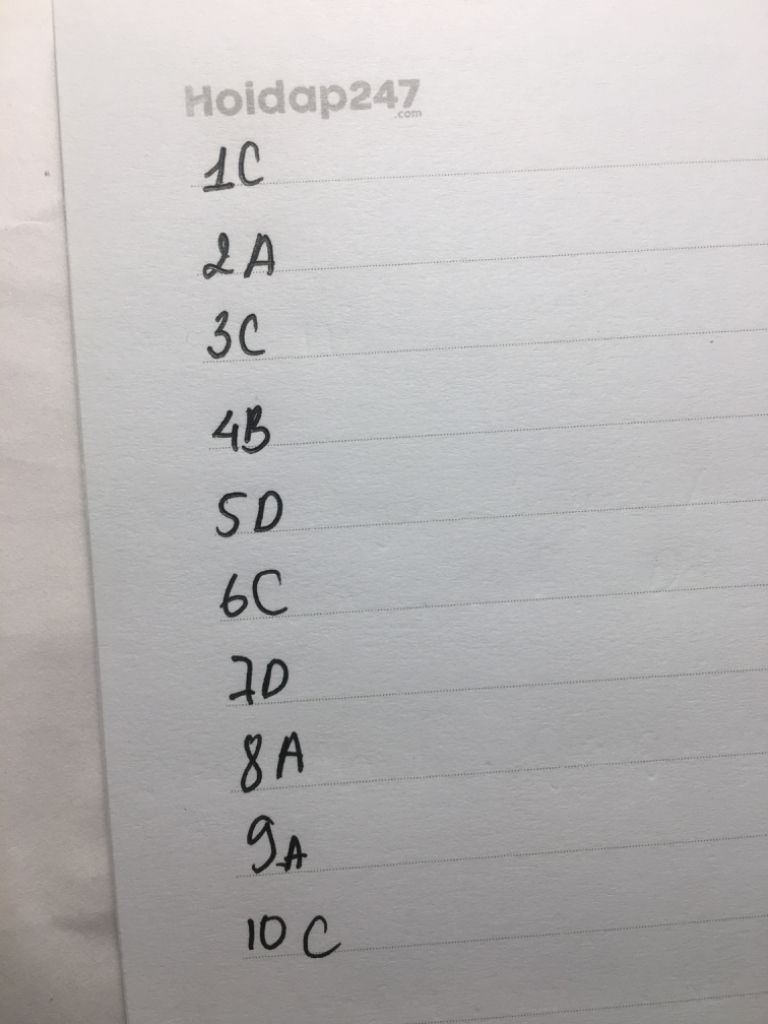 Hoidap247
.com
1C
2A
3C
4B
5D
6C
7D
8A
9A
10 C